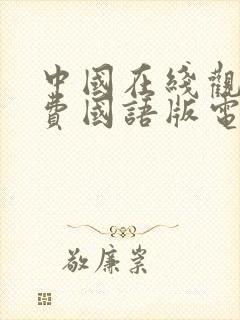 中國在綫觀
費國語版電
敬廉崇